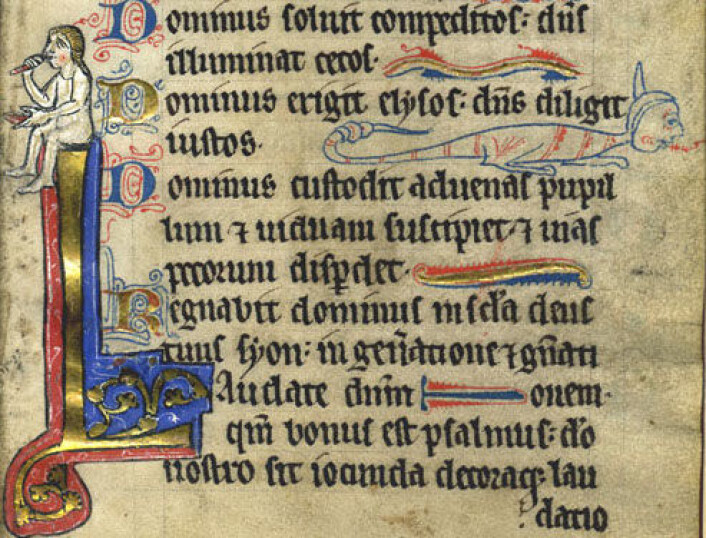 Dominus soluit compeditos: dn̄s
illuminat cecos.
Dominus erigit elysos: dn̄s diligit
iustos.
Dominus custodit aduenas pupil
lum ⁊ uiduam suscipiet ⁊ uias
peccorum disꝑdet.
Regnabit dominus in scl̄a deus
tuus syon: in gen̄atione ⁊ gn̄ati
onem.
Laudate dn̄m
qm̄ bonus est psalmus: dō
nostro sit iocunda decoraqꝫ lau
datio